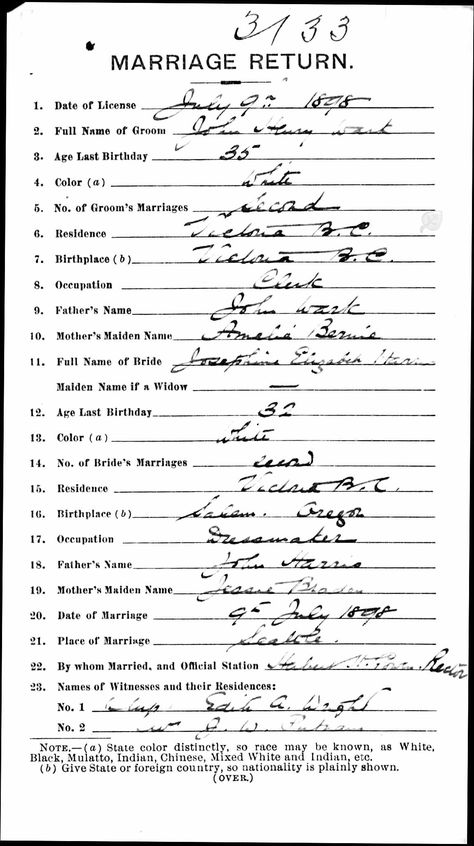 3133
MARRIAGE RETURN.
1. Date of License July 9th 1898
2. Full Name of Groom John Henry Wark
3. Age Last Birthday 35
4. Color (a) White
5. No. of Groom's Marriages Second
6. Residence Victoria B.C.
7. Birthplace (b) Victoria B.C.
8. Occupation Clerk
9. Father's Name John Wark
10. Mother's Maiden Name Amelia Bernie
11. Full Name of Bride Josephine Elizabeth
Maiden Name if a Widow —
12. Age Last Birthday 32
13. Color (a) White
14. No. of Bride's Marriages Second
15. Residence Victoria B.C.
16. Birthplace (b) Salem. Oregon
17. Occupation Dressmaker
18. Father's Name John Harris
19. Mother's Maiden Name Jessie
20. Date of Marriage 9th July 1898
21. Place of Marriage Seattle.
22. By whom Married, and Official Station Rector
23. Names of Witnesses and their Residences:
No. 1 Edith A. Wright
No. 2 J. W.
NOTE.—(a) State color distinctly, so race may be known, as White,
Black, Mulatto, Indian, Chinese, Mixed White and Indian, etc.
(b) Give State or foreign country, so nationality is plainly shown.
(OVER.)